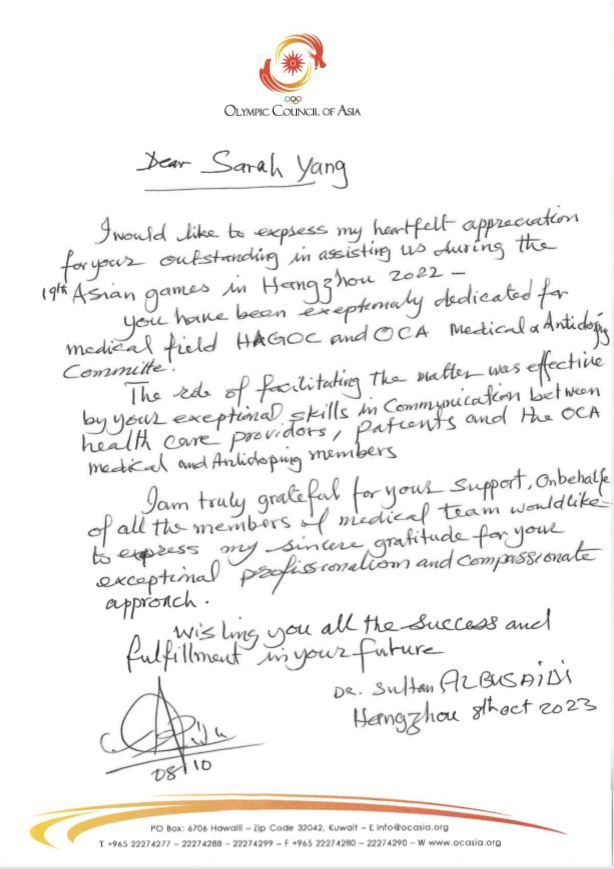 OLYMPIC COUNCIL OF ASIA
Dear Sarah Yang
I would like to expsess my heartfelt appreciation
for your outstanding in assisting us during the
19th Asian games in Hengzhou 2022 –
you have been exeptionaly dedicated for
medical field HAGOC and OCA Medical & Antidoping
Committe.
The role of facilitating the matter was effective
by your exeptional skills in Communication between
health care providors, patients and the OCA
medical and Antidoping members
I am truly grateful for your support, Onbehalfe
of all the members of medical team would like
to express my sincere gratitude for your
exceptional profissionalism and compassionate
approch.
wishing you all the success and
fulfillment in your future
Dr. Sultan ALBUSAIDI
Hengzhou 8th oct 2023
08/10
PO Box: 6706 Hawalli – Zip Code 32042, Kuwait – E info@ocasia.org
T +965 22274277 – 22274288 – 22274299 – F +965 22274280 – 22274290 – W www.ocasia.org